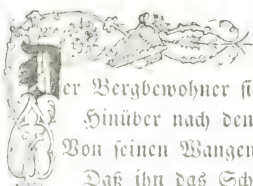 Der Bergbewohner si
Hinüber nach den
Von seinen Wangen
Daß ihn das Sch